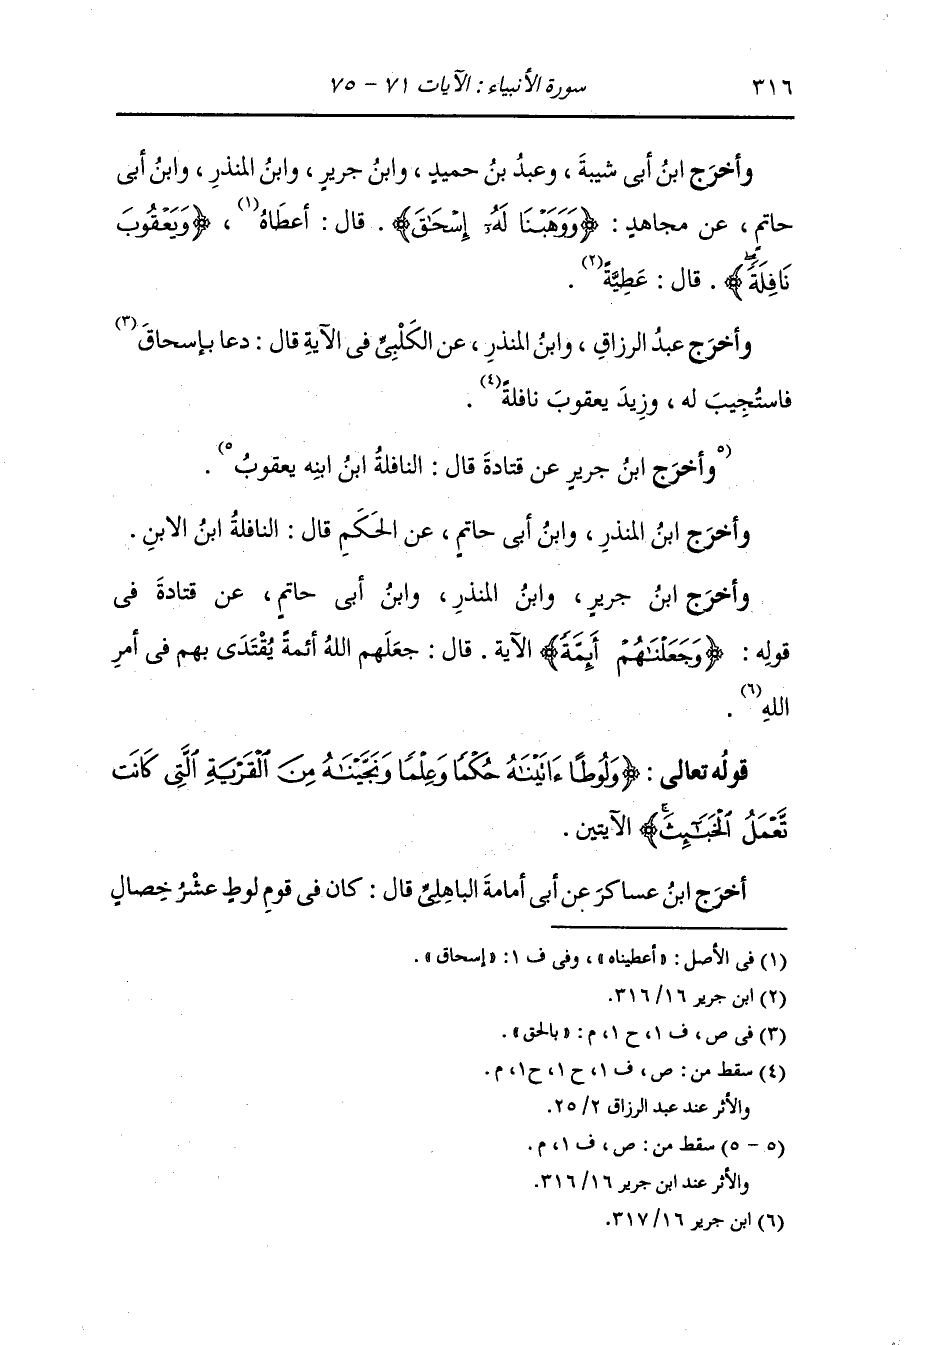 ٣١٦ سورة الأنبياء : الآيات ٧١ - ٧٥
وأخرَج ابنُ أبى شيبةَ ، وعبدُ بنُ حميدٍ ، وابنُ جريرٍ ، وابنُ المنذرِ ، وابنُ أبى
حاتمٍ ، عن مجاهدٍ : ﴿وَوَهَبْنَا لَهُۥٓ إِسْحَٰقَ﴾ . قال : أعطَاهُ(١) ، ﴿وَيَعْقُوبَ
نَافِلَةًۖ﴾ . قال : عَطِيَّةً(٢) .
وأخرَج عبدُ الرزاقِ ، وابنُ المنذرِ ، عن الكَلْبِىِّ فى الآيةِ قال : دعا بإسحاقَ(٣)
فاستُجِيبَ له ، وزِيدَ يعقوبَ نافلةً(٤) .
(٥وأخرَج ابنُ جريرٍ عن قتادةَ قال : النافلةُ ابنُ ابنِه يعقوبُ٥) .
وأخرَج ابنُ المنذرِ ، وابنُ أبى حاتمٍ ، عن الحَكَمِ قال : النافلةُ ابنُ الابنِ .
وأخرَج ابنُ جريرٍ ، وابنُ المنذرِ ، وابنُ أبى حاتمٍ ، عن قتادةَ فى
قولِه : ﴿وَجَعَلْنَٰهُمْ أَئِمَّةً﴾ الآية . قال : جعَلَهم اللهُ أئمةً يُقْتَدَى بهم فى أمرِ
اللهِ(٦) .
قولُه تعالى : ﴿وَلُوطًا ءَاتَيْنَٰهُ حُكْمًا وَعِلْمًا وَنَجَّيْنَٰهُ مِنَ ٱلْقَرْيَةِ ٱلَّتِى كَانَت
تَّعْمَلُ ٱلْخَبَٰٓئِثَۚ﴾ الآيتين .
أخرَج ابنُ عساكرَ عن أبى أمامةَ الباهلِىِّ قال : كان فى قومِ لوطٍ عشْرُ خِصالٍ
(١) فى الأصل : «أعطيناه» ، وفى ف ١ : «إسحاق» .
(٢) ابن جرير ١٦/ ٣١٦.
(٣) فى ص ، ف ١، ح ١، م : «بالحق» .
(٤) سقط من : ص ، ف ١، ح ١، ح١، م .
والأثر عند عبد الرزاق ٢/ ٢٥.
(٥ - ٥) سقط من : ص ، ف ١، م .
والأثر عند ابن جرير ١٦/ ٣١٦.
(٦) ابن جرير ١٦/ ٣١٧.